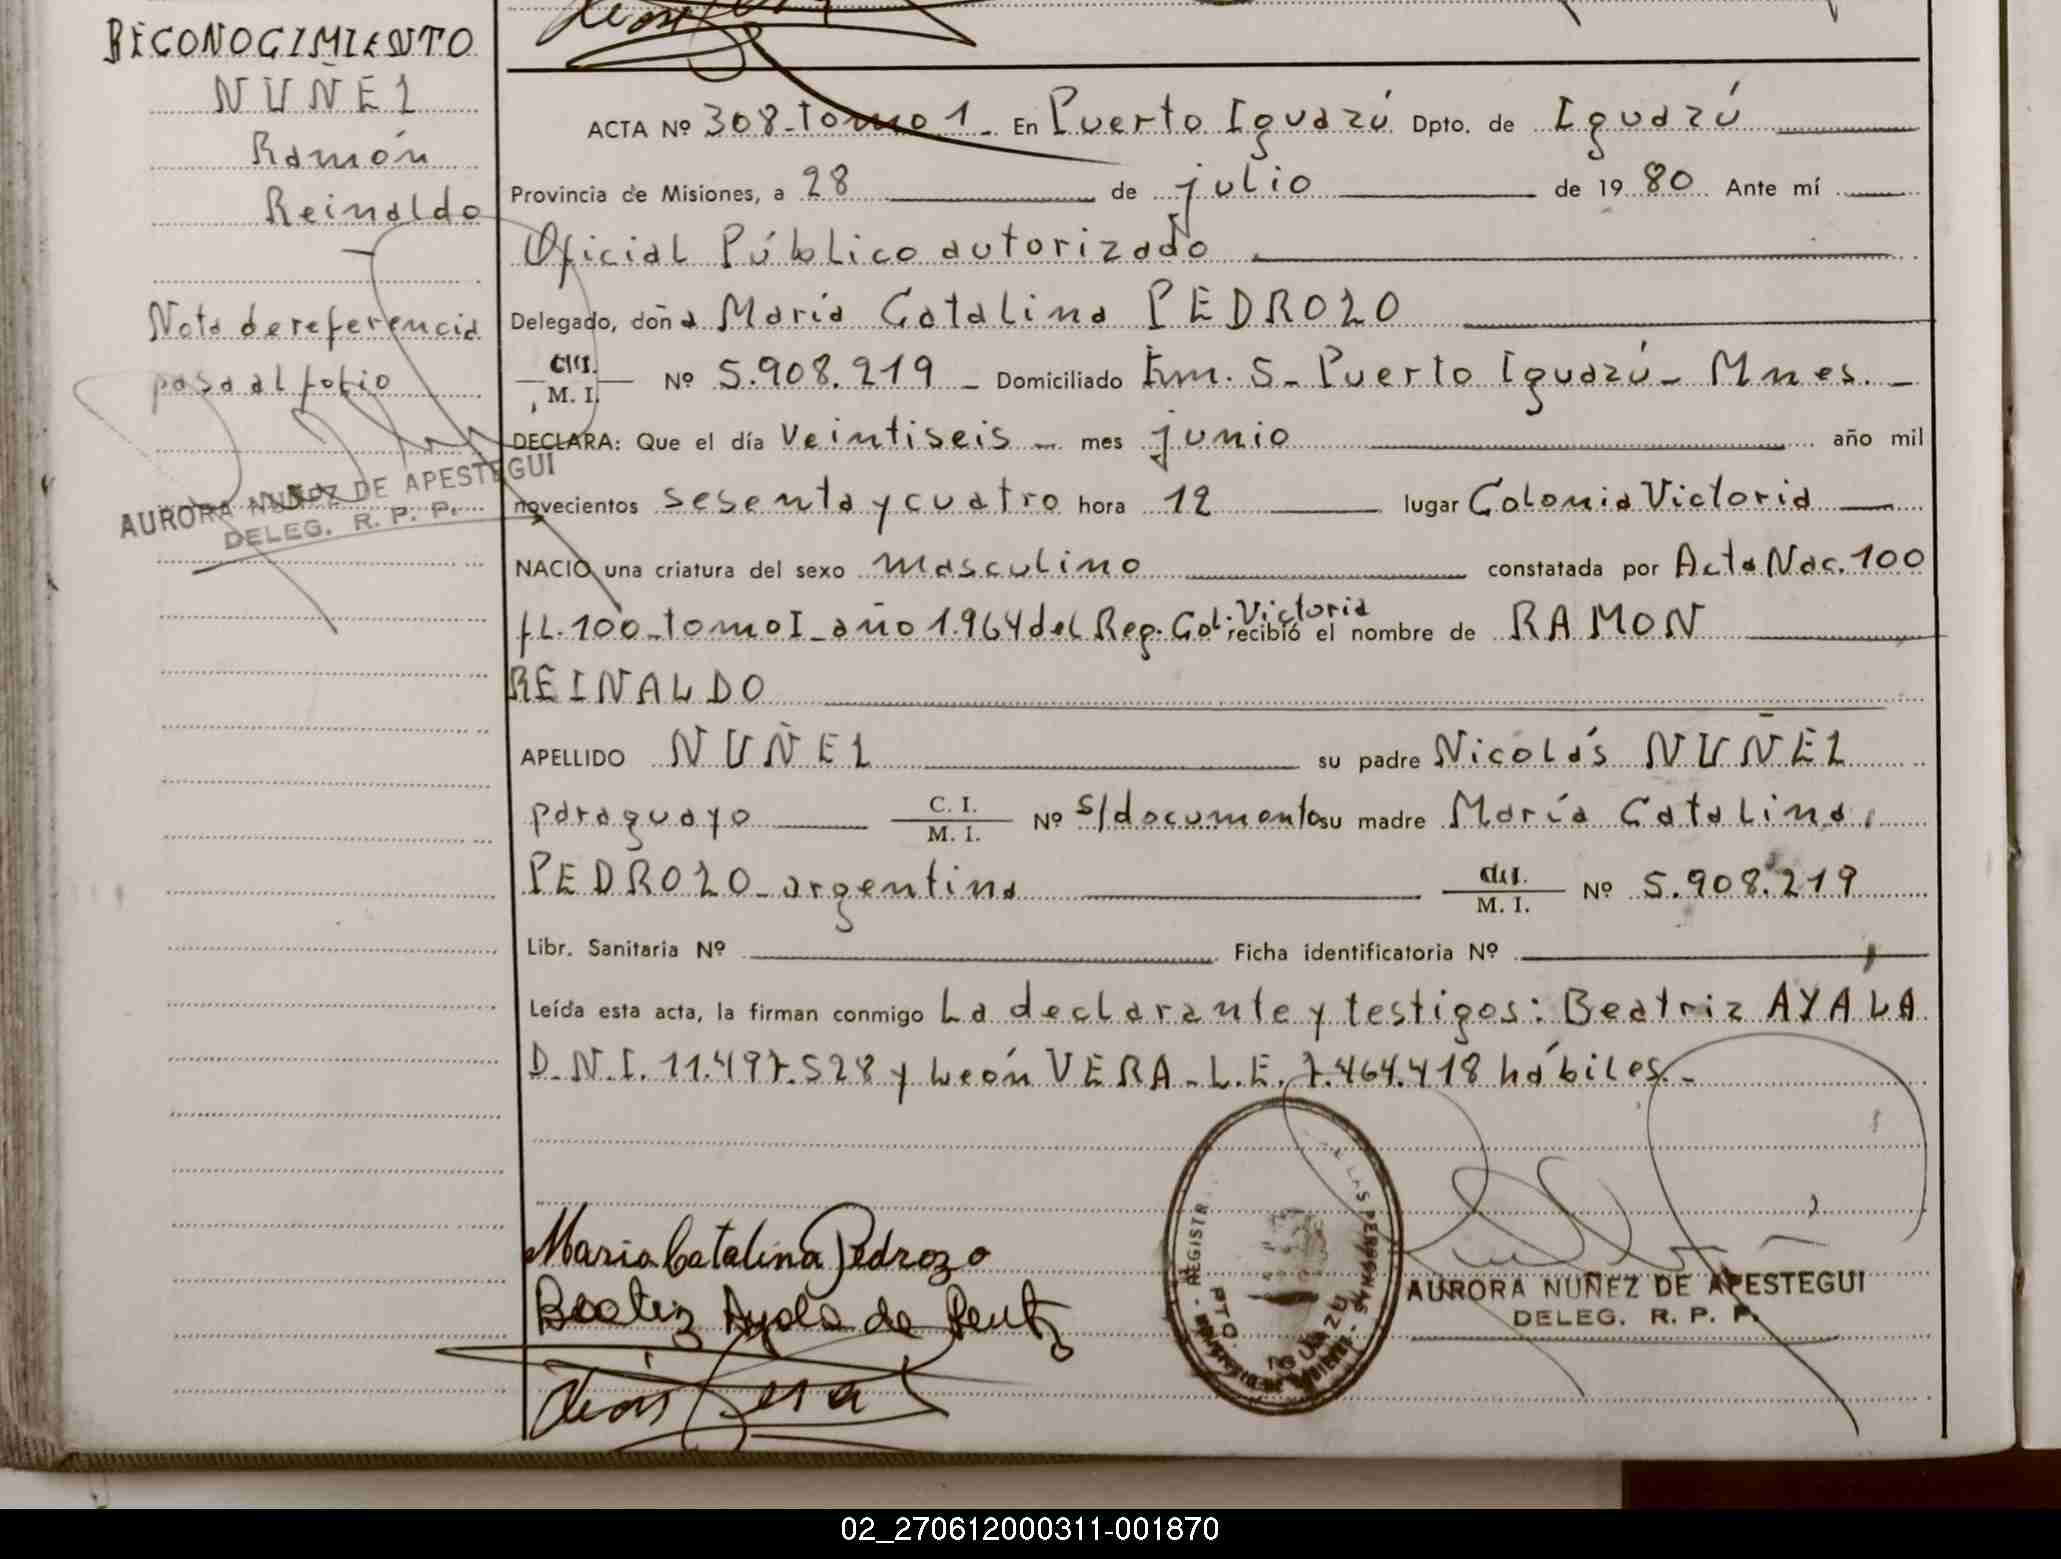 RECONOCIMIENTO
NUÑEZ
Ramón
Reinaldo
Nota de referencia
pasa al folio
AURORA NUÑEZ DE APESTEGUI
DELEG. R. P. P.
ACTA Nº 308-Tomo 1- En Puerto Iguazú Dpto. de Iguazú
Provincia de Misiones, a 28 de julio de 19 80 Ante mí
Oficial Público autorizado
Delegado, doña María Catalina PEDROZO
M. I. Nº 5.908.219 - Domiciliado Km. 5- Puerto Iguazú- Mnes.-
DECLARA: Que el día Veintiseis - mes junio año mil
novecientos sesenta y cuatro hora 12 lugar Colonia Victoria
NACIO una criatura del sexo masculino constatada por Acta Nac. 100
fl. 100-tomo I-año 1.964 del Reg. Col. Victoria recibió el nombre de RAMON
REINALDO
APELLIDO NUÑEZ su padre Nicolás NUÑEZ
paraguayo C. I. M. I. Nº s/documento su madre María Catalina
PEDROZO-argentina M. I. Nº 5.908.219
Libr. Sanitaria Nº Ficha identificatoria Nº
Leída esta acta, la firman conmigo La declarante y testigos: Beatriz AYALA
D.N.I. 11.497.528 y León VERA-L.E. 7.464.418 hábiles.-
Maria Catalina Pedrozo
Beatriz Ayala de
León Vera
REGISTR
LAS PERSONAS
PTO. IGUAZU
AURORA NUÑEZ DE APESTEGUI
DELEG. R. P. P.
02_270612000311-001870